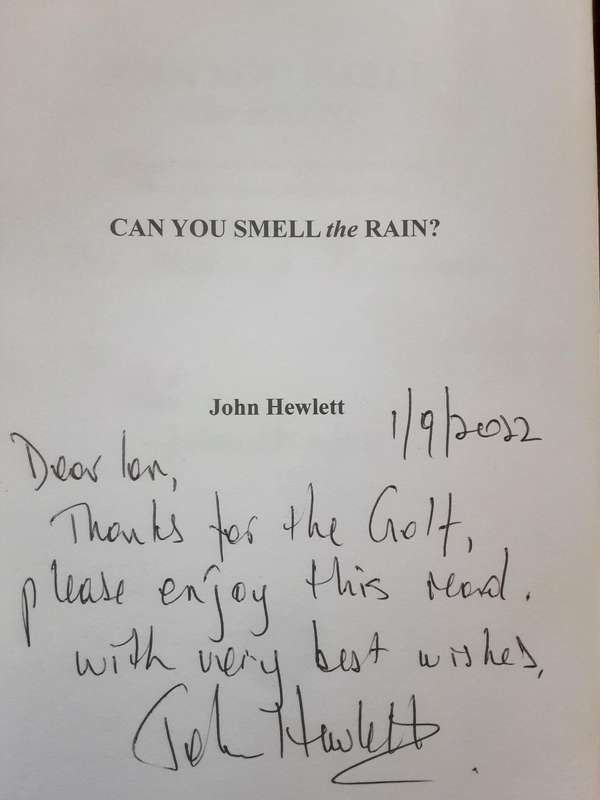 CAN YOU SMELL the RAIN?
John Hewlett
1/9/2022
Dear Ian,
Thanks for the Golf,
please enjoy this read.
with very best wishes,
John Hewlett